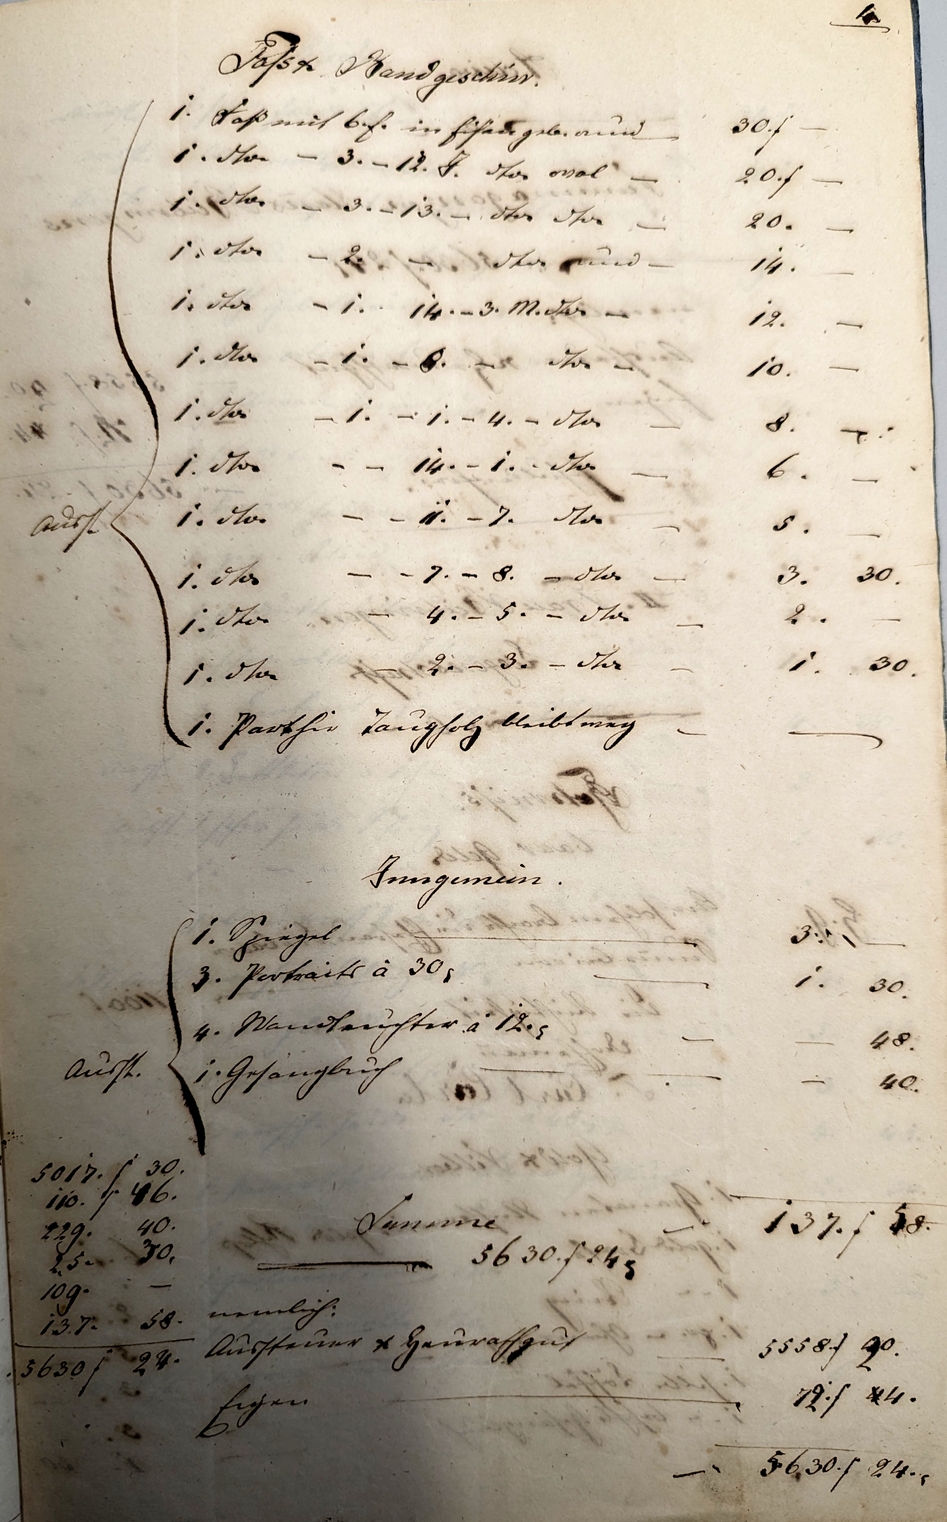 4.
Faß & Bandgeschirr.
1. Faß mit 6. f. in Eisen geb. rund — 30. f —
1. dto — 3. — 12. J. dto oval — 20. f —
1. dto — 3. — 13. — dto dto — 20. —
1. dto — 2. — — dto rund — 14. —
1. dto — 1. 14. — 3. M. dto — 12. —
1. dto — 1. — 8. — dto — 10. —
1. dto — 1. — 1. — 4. — dto — 8. —
1. dto — — 14. — 1. — dto — 6. —
Ausst. 1. dto — — 11. — 7. dto — 5. —
1. dto — — 7. — 8. — dto — 3. 30.
1. dto — 4. — 5. — dto — 2. —
1. dto 2. — 3. — dto — 1. 30.
1. Parthie Taugholz bleibt weg — —
Inngemein.
1. Spiegel — 3. f —
3. Portraits à 30 — 1. 30.
4. Wandleuchter à 12. — — 48.
Ausst. 1. Gesangbuch — — — 40.
5017. f 30.
110. f 46.
229. 40.
25. 30.
109. —
137. 58.
5630 f 24.
Summe — 137. f 58.
5630. f 24
nemlich:
Aussteuer & Heurathgut — 5558. f
Eigen — 72. f 44.
— 5630. f 24.